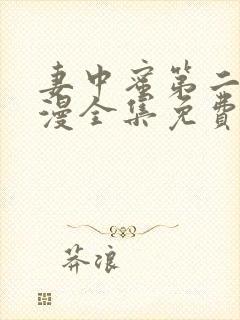 妻中蜜第二
漫全集免费
莽浪